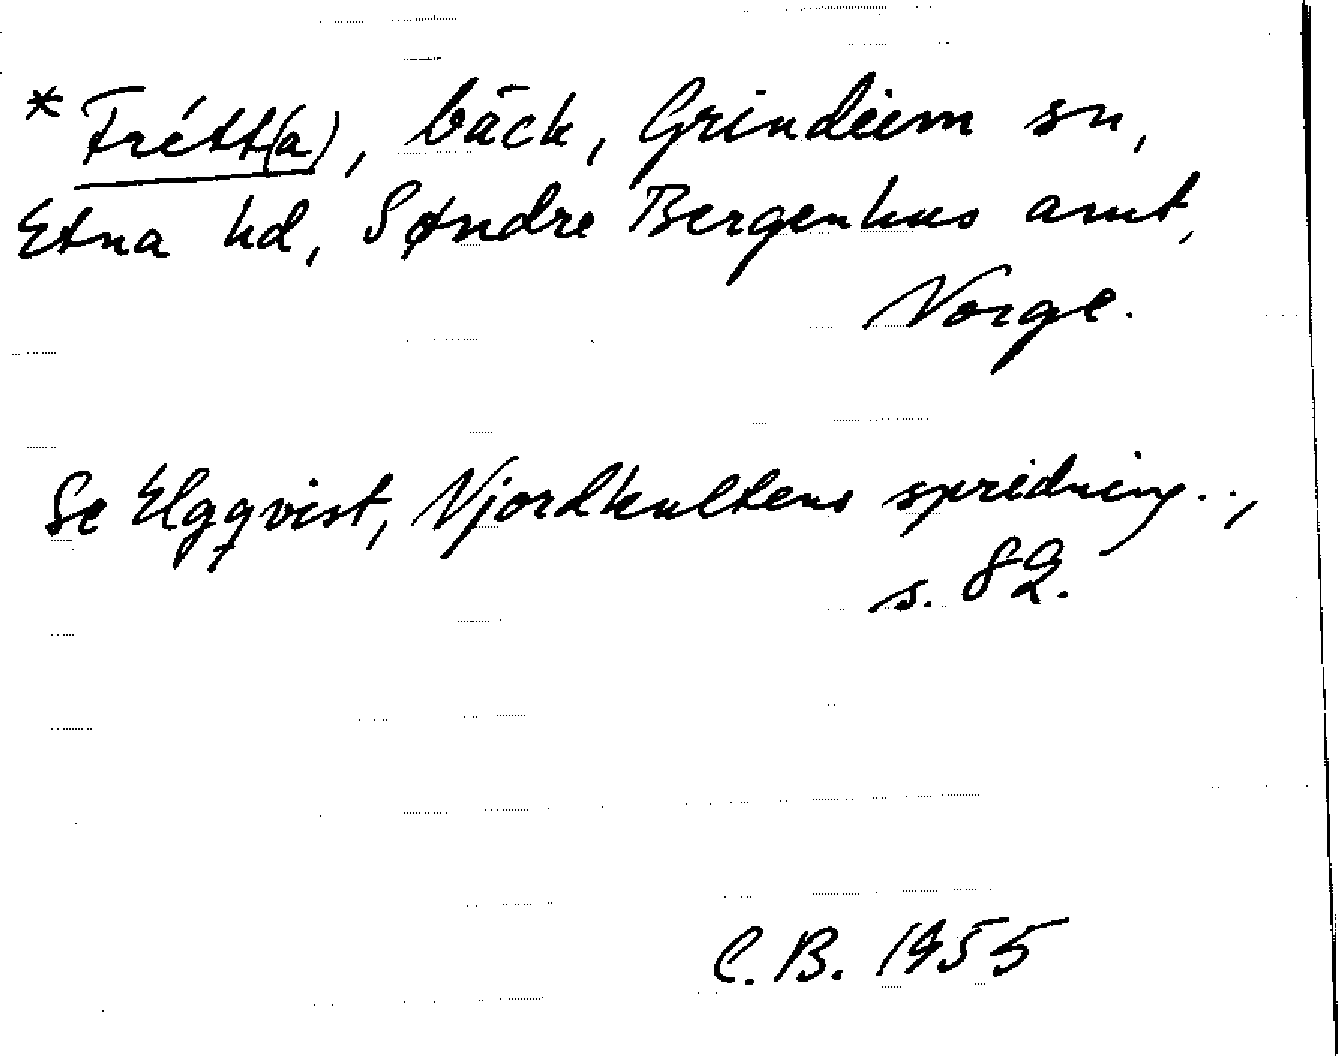 *Frétt(a), bäck, Grindeim sn,
Etna hd, Søndre Bergenhus amt,
Norge.
Se Elgqvist, Njordkultens spridning..,
s. 82.
C.B. 1955